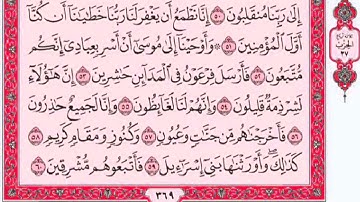 إِلَىٰ رَبِّنَا مُنقَلِبُونَ ٥٠ إِنَّا نَطْمَعُ أَن يَغْفِرَ لَنَا رَبُّنَا خَطَٰيَٰنَآ أَن كُنَّآ
أَوَّلَ ٱلْمُؤْمِنِينَ ٥١ ۞ وَأَوْحَيْنَآ إِلَىٰ مُوسَىٰٓ أَنْ أَسْرِ بِعِبَادِىٓ إِنَّكُم
مُّتَّبَعُونَ ٥٢ فَأَرْسَلَ فِرْعَوْنُ فِى ٱلْمَدَآئِنِ حَٰشِرِينَ ٥٣ إِنَّ هَٰٓؤُلَآءِ
لَشِرْذِمَةٌ قَلِيلُونَ ٥٤ وَإِنَّهُمْ لَنَا لَغَآئِظُونَ ٥٥ وَإِنَّا لَجَمِيعٌ حَٰذِرُونَ
٥٦ فَأَخْرَجْنَٰهُم مِّن جَنَّٰتٍ وَعُيُونٍ ٥٧ وَكُنُوزٍ وَمَقَامٍ كَرِيمٍ ٥٨
كَذَٰلِكَ وَأَوْرَثْنَٰهَا بَنِىٓ إِسْرَٰٓءِيلَ ٥٩ فَأَتْبَعُوهُم مُّشْرِقِينَ ٦٠
٣٦٩
الحزب
٣٧